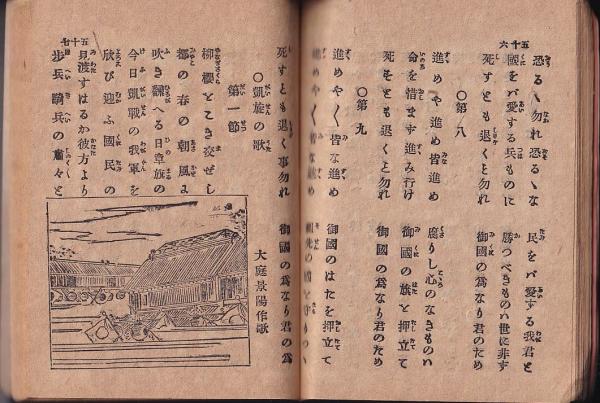 五十六
恐るゝ勿れ恐るゝな 民をバ愛する我君と
國をバ愛する兵ものに 勝つべきものハ世に非す
死すとも退くと勿れ 御國の爲なり君のため
〇第八
進めや進め皆進め 腐りし心のなきものハ
命を惜ます進み行け 御國の旗と押立て
死すとも退くと勿れ 御國の爲なり君のため
〇第九
進めや〱皆な進め 御國のはたを押立て
進めや〱皆な進め
死すとも退く事勿れ 御國の爲なり君の爲
〇凱旋の歌 大庭景陽作歌
第一節
柳櫻とこき交ぜし
都の春の朝風よ
吹き飜へる日章旗の
今日凱戰の我軍を
欣び迎ふ國民の
見渡すはるか彼方より
歩兵騎兵の肅々と
五十七